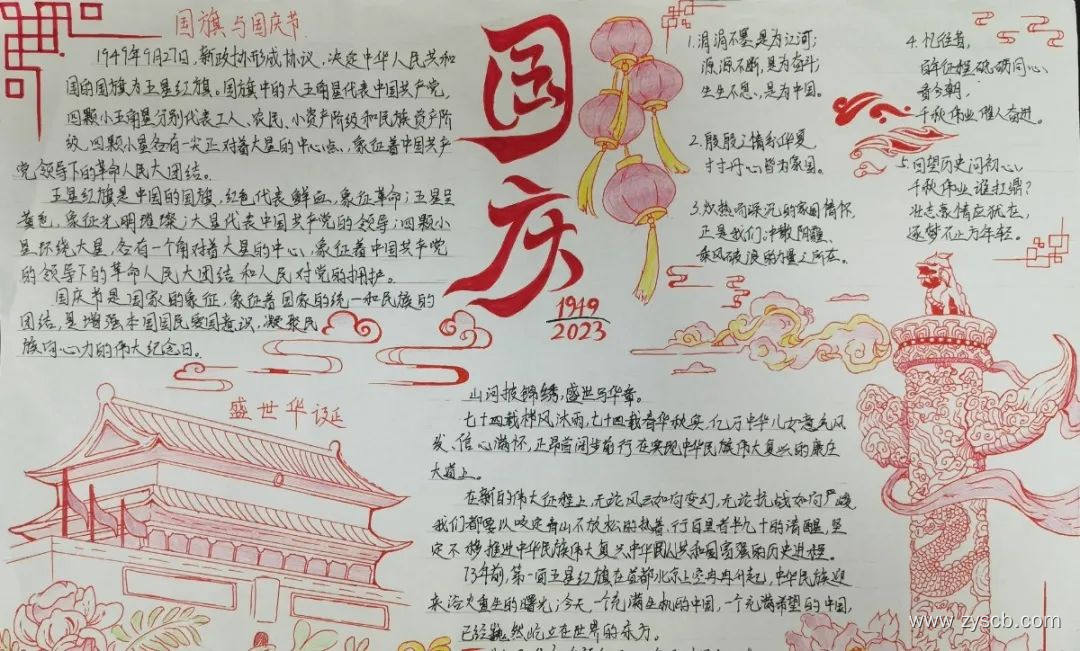 国旗与国庆节
1949年9月27日，新政协形成协议，决定中华人民共和
国的国旗为五星红旗。国旗中的大五角星代表中国共产党，
四颗小五角星分别代表工人、农民、小资产阶级和民族资产阶
级，四颗小星各有一尖正对着大星的中心点，象征着中国共产
党领导下的革命人民大团结。
五星红旗是中国的国旗，红色代表鲜血，象征革命；五星呈
黄色，象征光明璀璨；大星代表中国共产党的领导；四颗小
星环绕大星，各有一个角对着大星的中心，象征着中国共产党
的领导下的革命人民大团结和人民对党的拥护。
国庆节是国家的象征，象征着国家的统一和民族的
团结，是增强本国国民爱国意识，凝聚民
族向心力的伟大纪念日。
国庆
1949
2023
1.涓涓不壅，是为江河；
源源不断，是为奋斗；
生生不息，是为中国。
2.殷殷之情系华夏
寸寸丹心皆为家国。
3.炽热而深沉的家国情怀，
正是我们冲散阴霾、
乘风破浪的力量之所在。
4.忆往昔，
百年征程砥砺同心，
看今朝，
千秋伟业催人奋进。
5.回望历史问初心，
千秋伟业谁扛鼎？
壮志豪情应犹在，
逐梦不止为年轻。
盛世华诞
山河披锦绣，盛世写华章。
七十四载栉风沐雨，七十四载春华秋实，亿万中华儿女意气风
发、信心满怀，正昂首阔步前行在实现中华民族伟大复兴的康庄
大道上。
在新的伟大征程上，无论风云如何变幻，无论抗战如何严峻
我们都要以咬定青山不放松的执着，行百里者半九十的清醒，坚
定不移推进中华民族伟大复兴中华人民共和国富强的历史进程。
73年前，第一面五星红旗在首都北京上空冉冉升起，中华民族迎
来浴火重生的曙光；今天，一个充满生机的中国，一个充满希望的中国，
已经巍然屹立在世界的东方。
www.zyscb.com